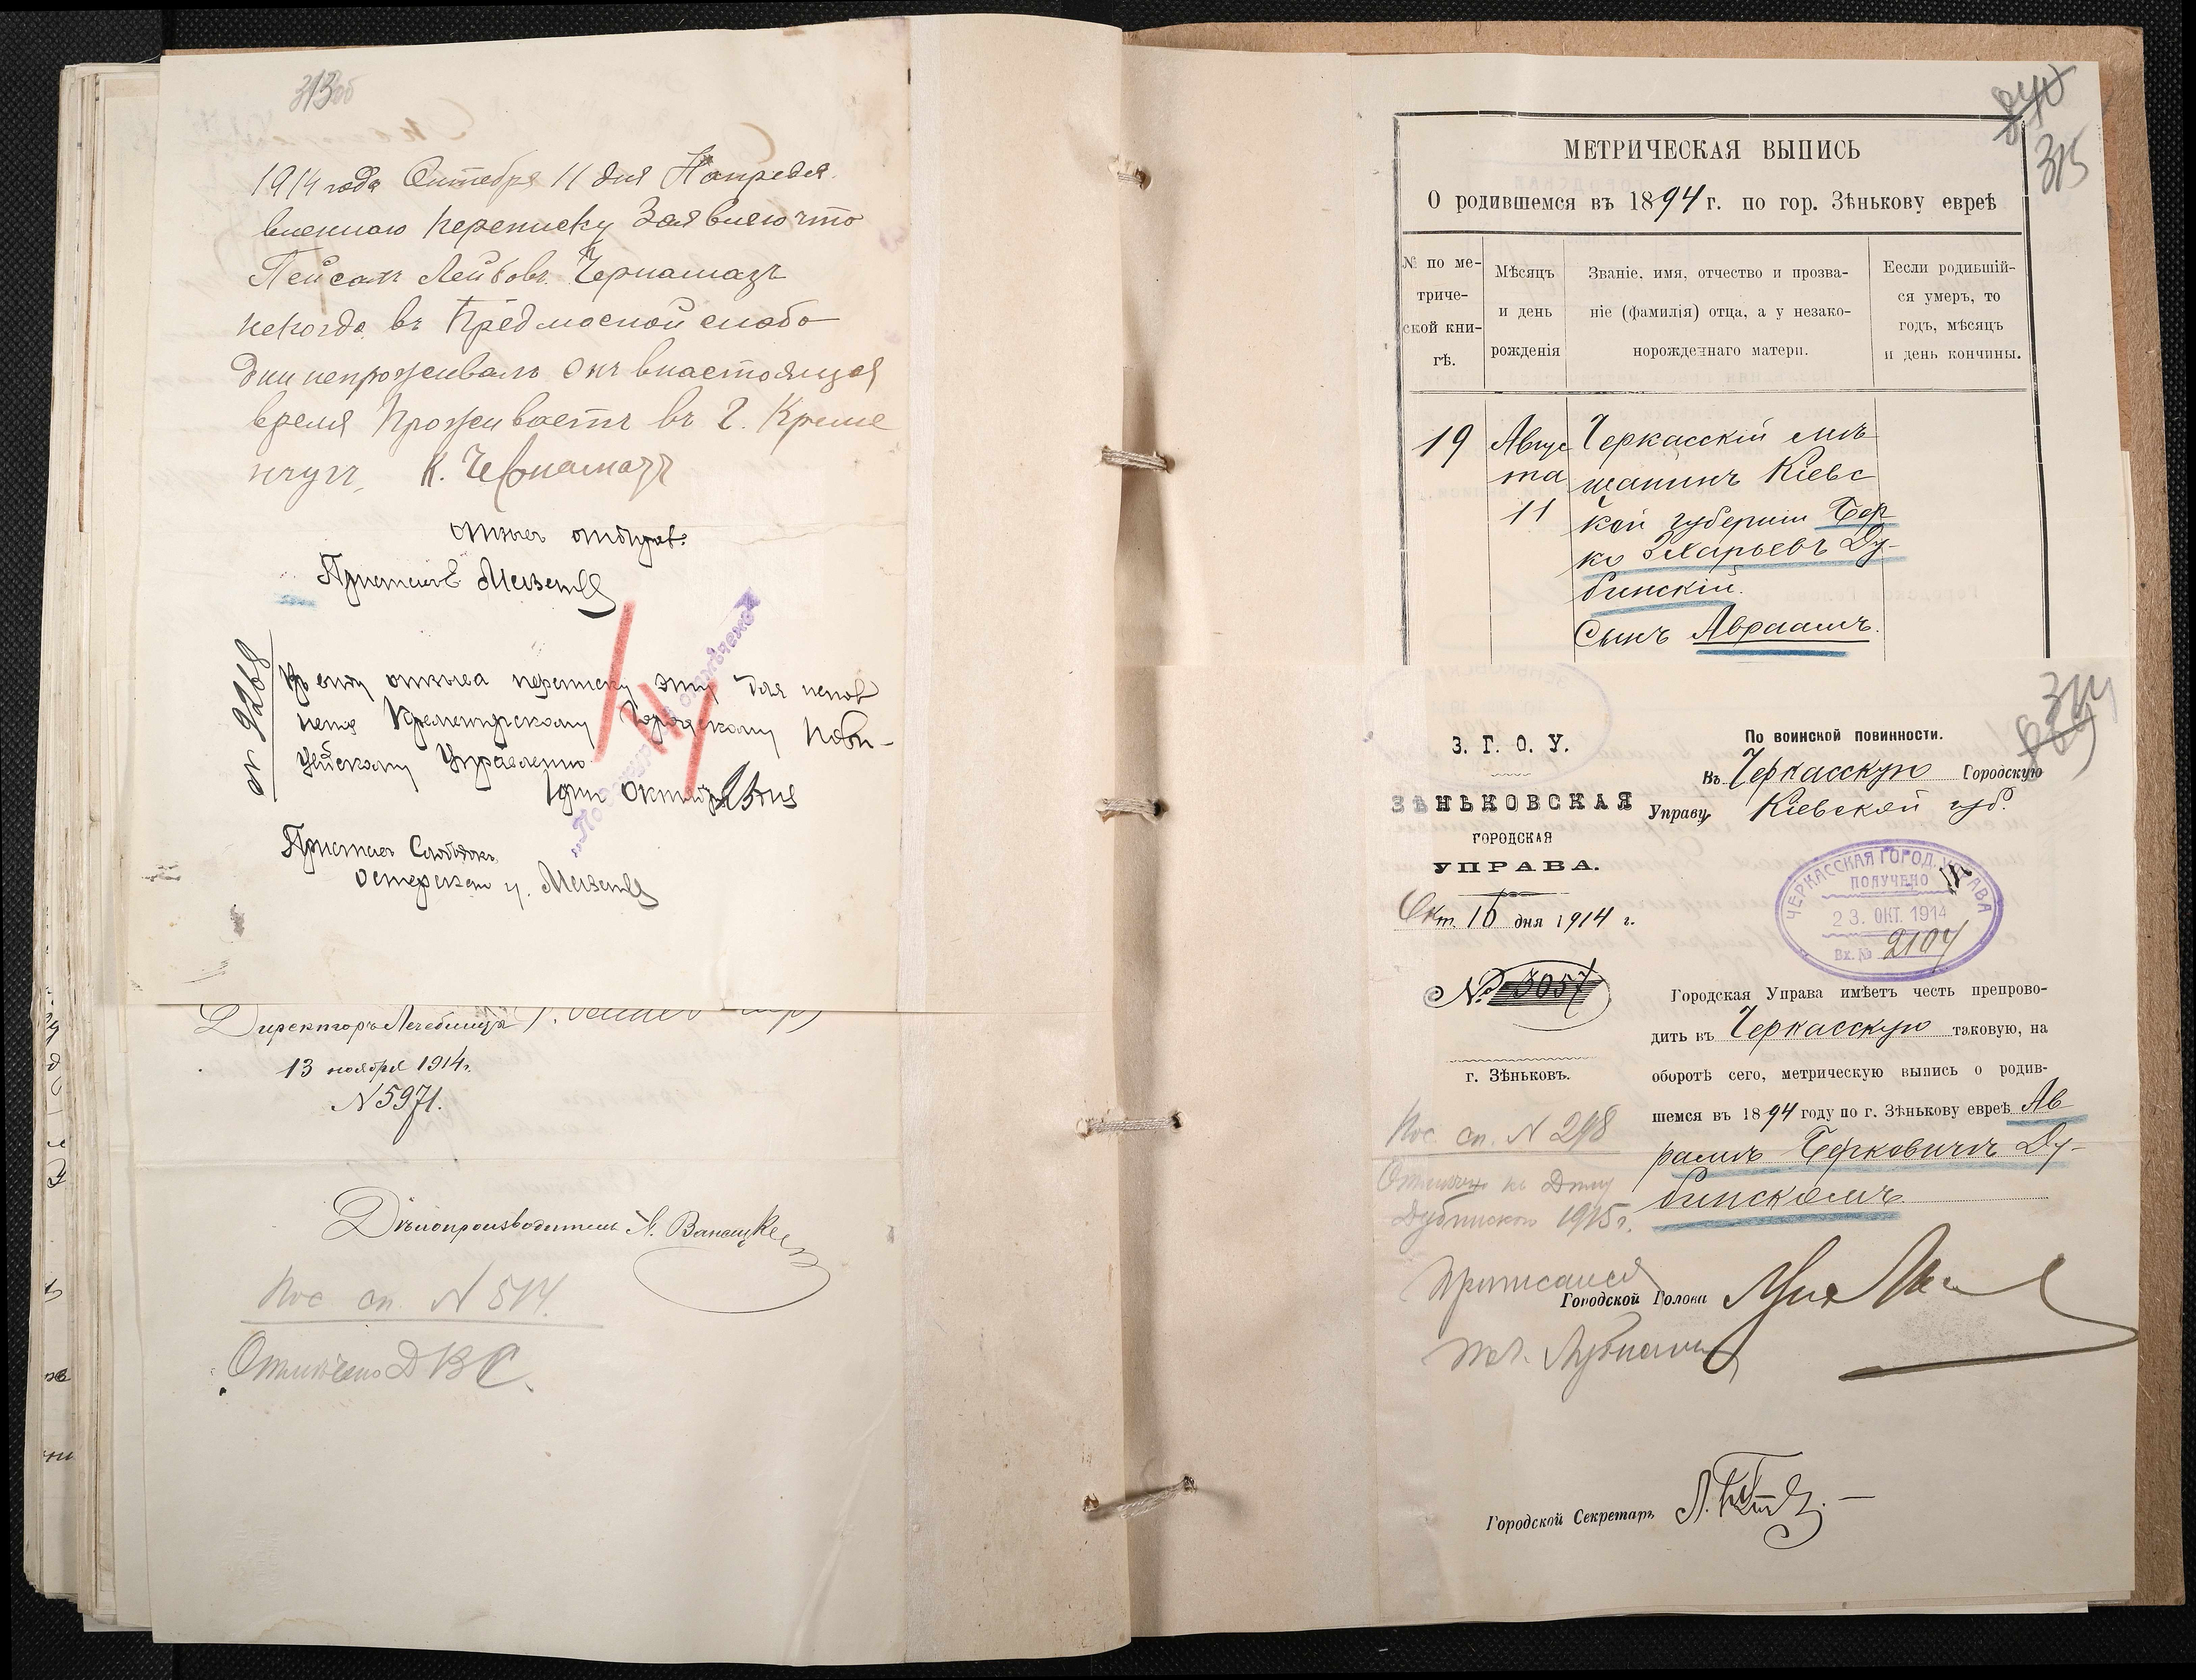 313 об
1914 года Октября 11 дня Напредя
вленною переписку Заявляю что
Пейсахъ Лейбовъ Чернамазъ
некогда въ Предмосной слобо
дки непроживалъ онъ внастоящая
время проживаетъ въ г. Креме
нчугъ, К. Чернамазъ
Приставъ
№ 9268
отзыва переписку эту для
Кременчугскому Городскому Поли-
цейскому Управленію
1914 Октября
Приставъ Слободокъ
Директоръ Лечебницы
13 ноября 1914 г.
№ 5971.
Дѣлопроизводитель
Пос сп. № 514.
Отмѣчено
840
315
МЕТРИЧЕСКАЯ ВЫПИСЬ
О родившемся въ 1894 г. по гор. Зѣнькову евреѣ
№ по ме-
триче-
ской кни-
гѣ.
Мѣсяцъ
и день
рожденія
Званіе, имя, отчество и прозва-
ніе (фамилія) отца, а у незако-
норожденнаго матери.
Еесли родившій-
ся умеръ, то
годъ, мѣсяцъ
и день кончины.
19
Авгус
та
11
Черкасскій мѣ
щанинъ Кіевс
кой губерніи Бер
ко Захарьевъ Ду-
бинскій.
Сынъ Авраамъ.
314
З. Г. О. У.
ЗѢНЬКОВСКАЯ
ГОРОДСКАЯ
УПРАВА.
Окт. 16 дня 1914 г.
№ 3057
г. Зѣньковъ.
По воинской повинности.
Въ Черкасскую Городскую
Управу Кіевской губ.
ЧЕРКАССКАЯ ГОРОД. УПРАВА
ПОЛУЧЕНО
23. ОКТ. 1914
Вх. № 2104
Городская Управа имѣетъ честь препрово-
дить въ Черкасскую таковую, на
оборотѣ сего, метрическую выпись о родив-
шемся въ 1894 году по г. Зѣнькову евреѣ Ав
рамѣ Берковичѣ Ду-
бинскомъ
Пос. сп. № 298
Отмѣчено къ
Дубинскій 1915 г.
приписался
Городской Голова
Городской Секретарь